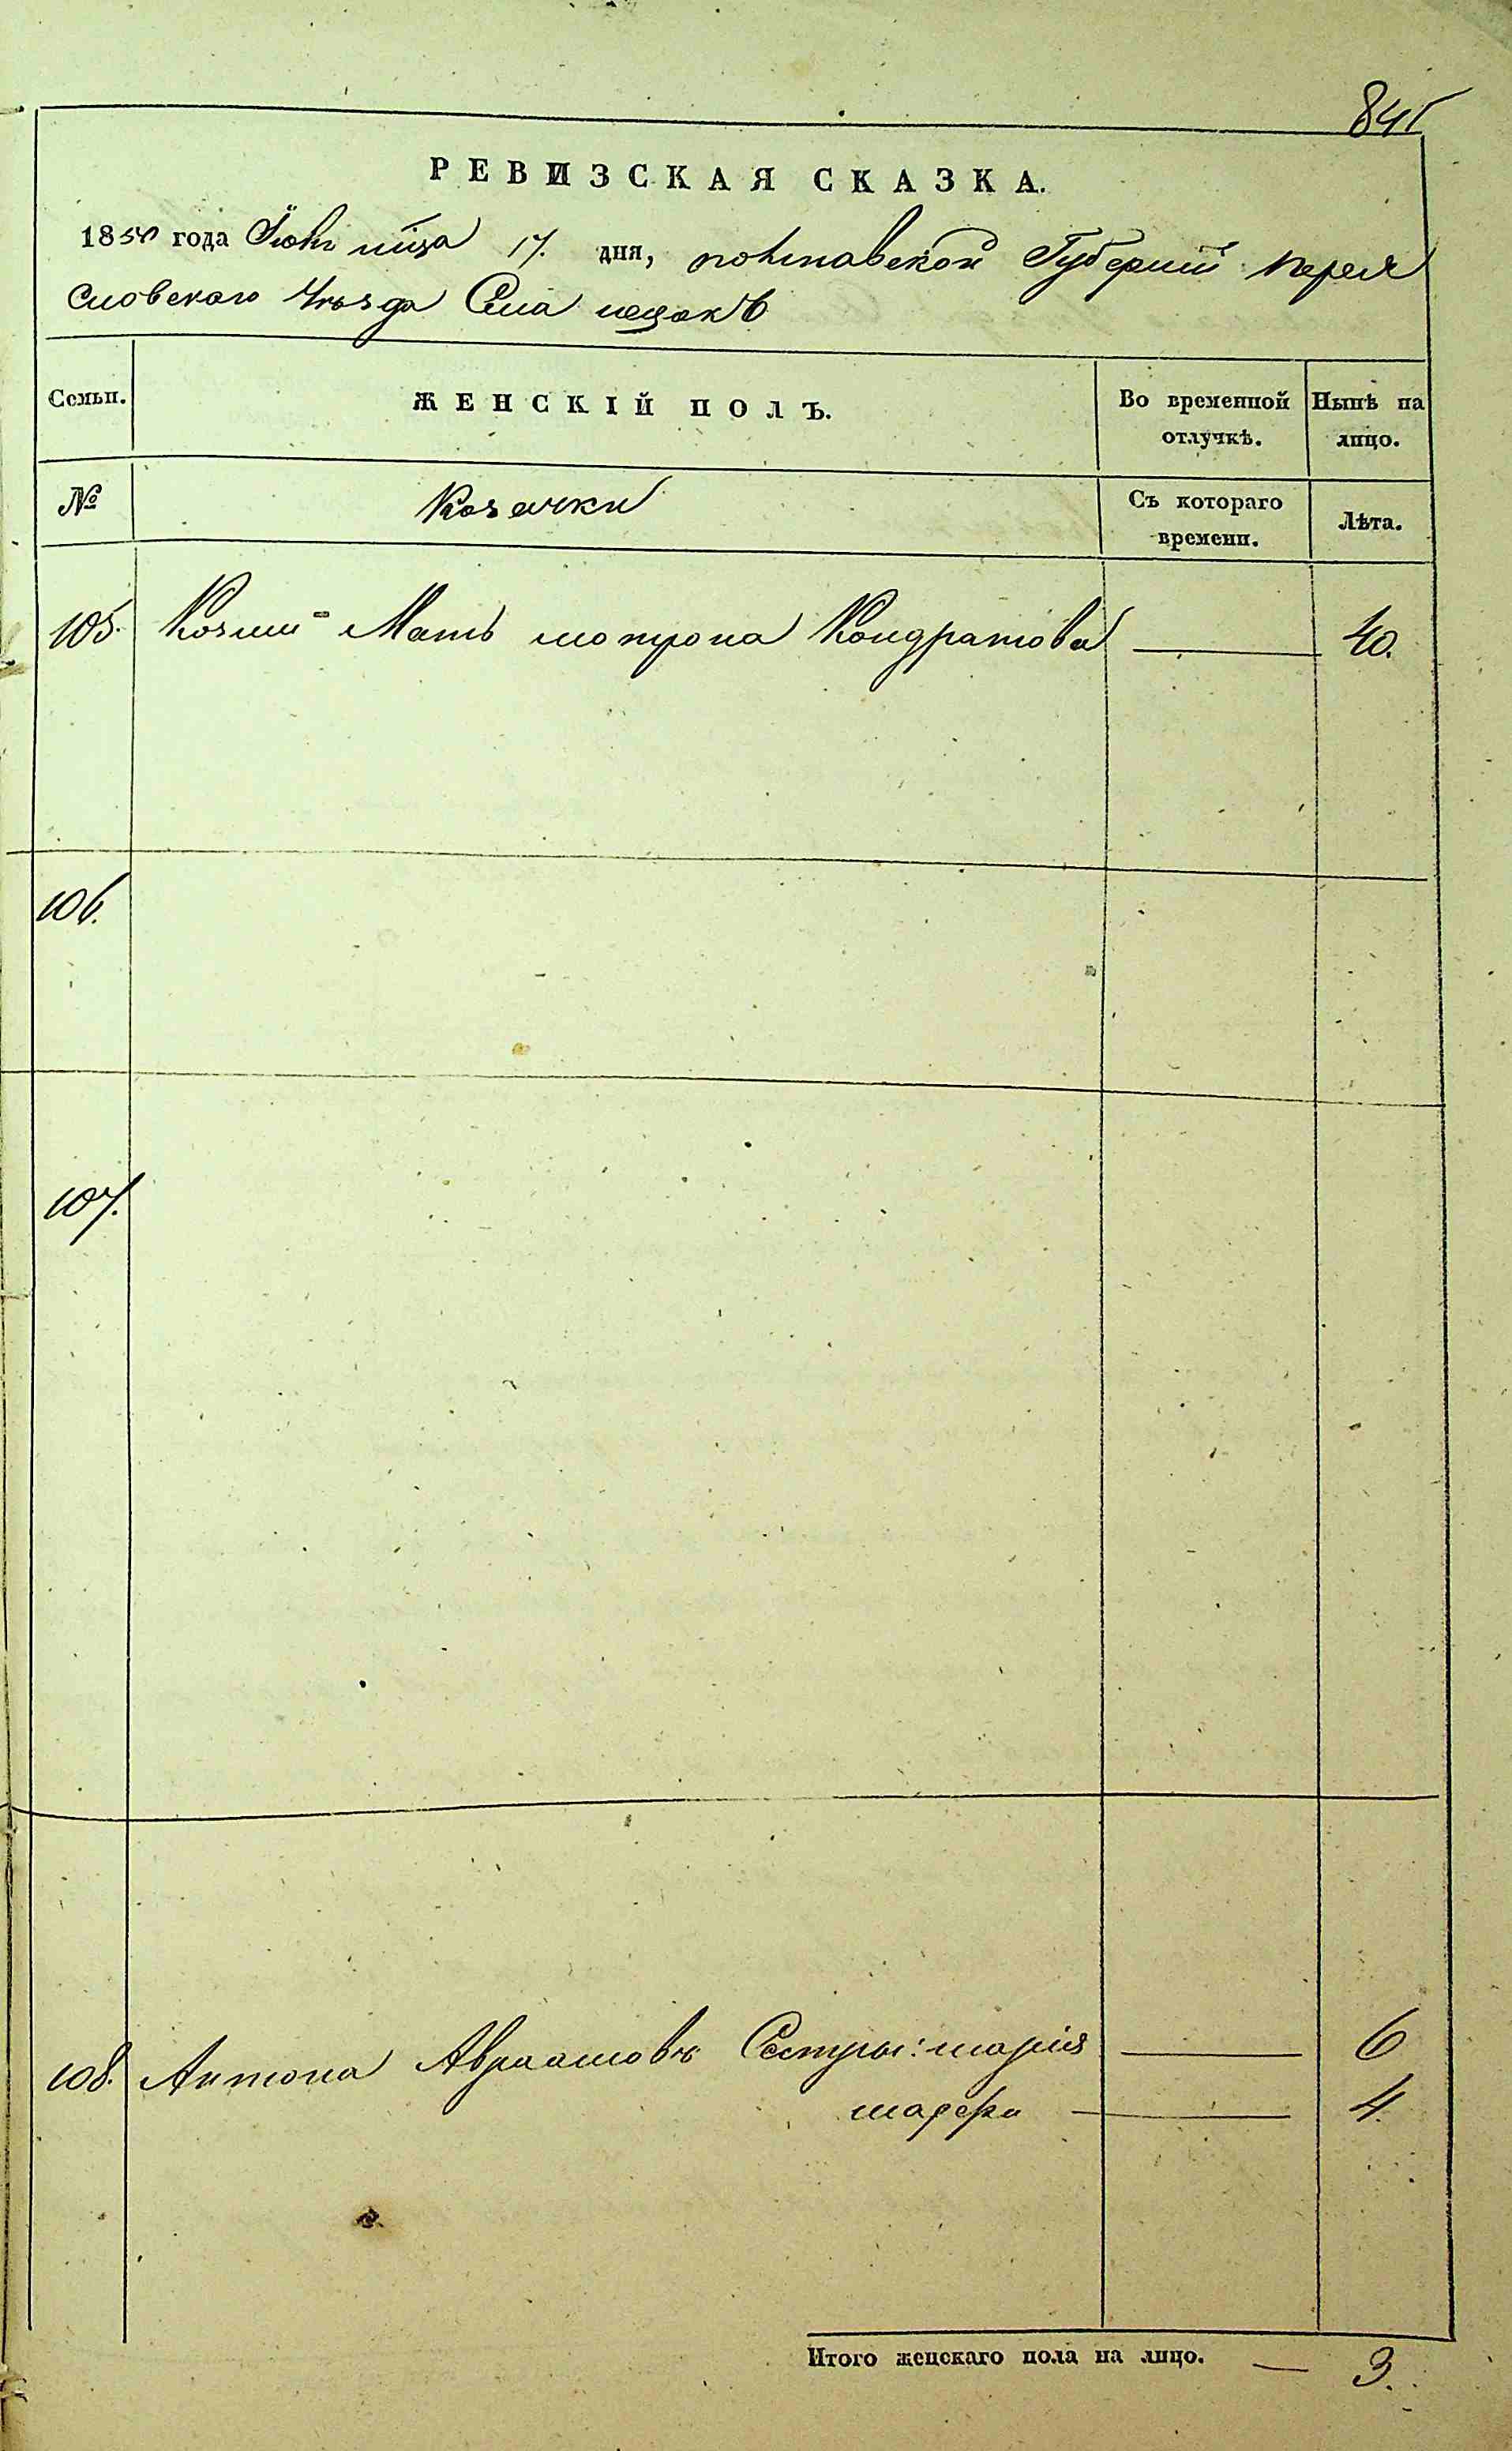 841
РЕВИЗСКАЯ СКАЗКА.
1850 года Іюнь мца 17. дня, полтавской Губерніи перея
словскаго Уѣзда Села
Семьи. ЖЕНСКІЙ ПОЛЪ. Во временной отлучкѣ. Нынѣ на лицо.
№ Козачки Съ котораго времени. Лѣта.
105. Козми Мать мотрона Кондратова 40.
106.
107.
108. Антона Авраамова Сестры: марія 6
4.
Итого женскаго пола на лицо. — 3.